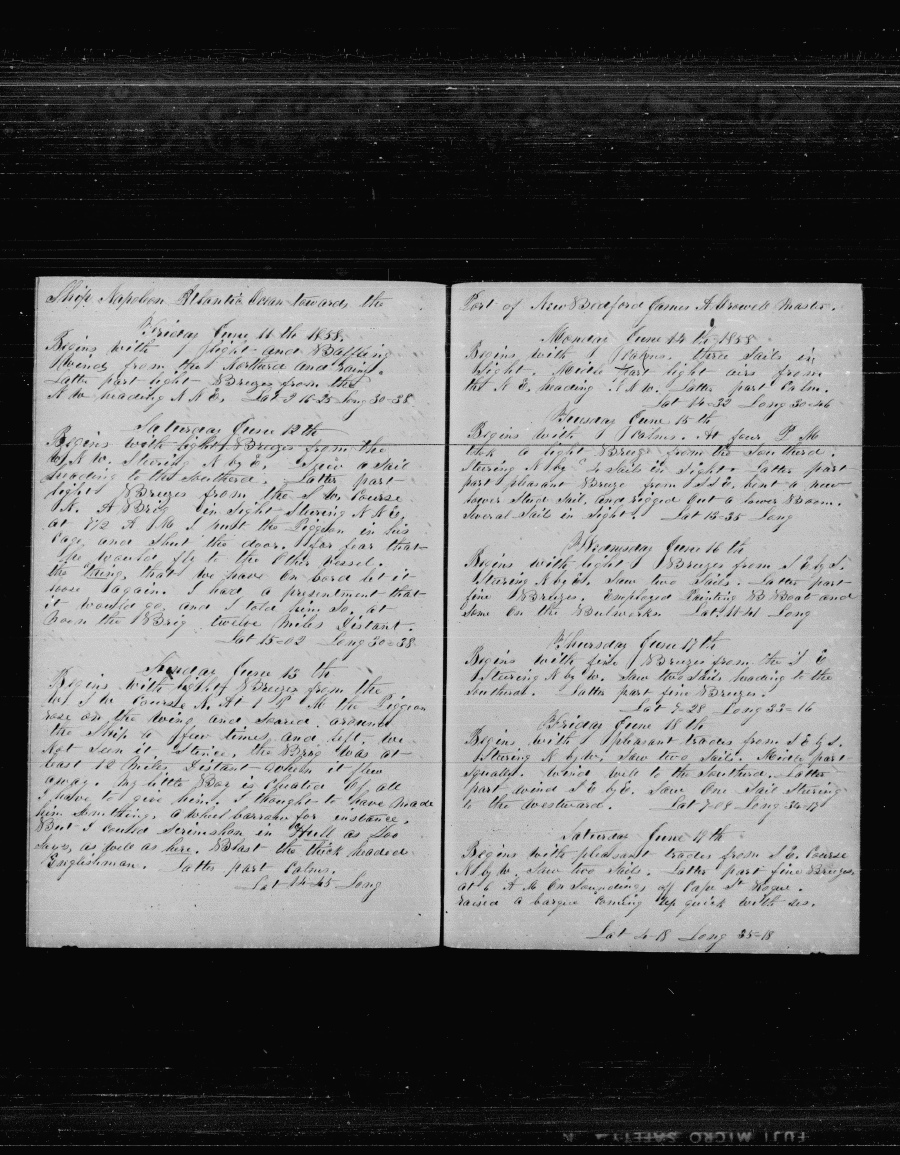 Ship Napoleon Atlantic Ocean towards the
Friday June 11th 1858.
Begins with light and Baffling
Winds from the Northard and rain.
Latter part light Breezes from the
N W heading N N E. Lat 16-25 Long 30-38
Saturday June 12th
Begins with light Breezes from the
W N W. Stering N by E. Saw a Sail
heading to the southerd. Latter part
light Breezes from the S W. Course
N. A Brig in sight Stering N N E,
at 7/2 A M I put the Piggeon in his
Cage and Shut the door. for fear that
he would fly to the Other vessel.
the thing that we have on bord let it
loose again. I had a presentment that
it would go, and I told him so, at
noon the Brig twelve miles Distant.
Lat 15=02 Long 30=38
Sunday June 13th
Begins with light Breezes from the
W S W Course N. At 1 P M the Piggeon
rose on the wing and soared around
the Ship a few times and left. we
Not seen it Since, the Brig was at
least 12 miles Distant when it flew
away. My little Boy is Cheated Of all
I have to give him. I thought to have made
him something, a wheel barrahw for instance.
But I could Scrimshon in Hull as
as well as here. Blast the thick headed
Englishman. Latter part Calms.
Lat 14-45 Long
Port of New Bedford James A. Crowell Master.
Monday June 14th 1858
Begins with Calms. three Sails in
Sight. Middle Part light airs from
the N E, heading N N W. Latter part Calm.
Lat 14=32 Long 30=46
Tuesday June 15th
Begins with Calms. At four P. M
took a light Breeze from the Southerd.
Stering N by 4 Sails in Sight. Latter part
part pleasant Breeze from S S E. bent a new
lower Stud Sail, and rigged Out a lower Boom.
Several Sail in Sight. Lat 13-35 Long
Wednesday June 16th
Begins with light Breezes from S E by S.
Stering N by W. Saw two Sails. Latter part
fine Breezes. Employed Painting B Boat and
some On the Bulwarks Lat 11-41 Long
Thursday June 17th
Begins with fine Breezes from the S E
Stering N by W. Saw two Sails heading to the
Southerd. Latter part fine Breezes.
Lat 9-28 Long 33=16
Friday June 18th
Begins with pleasant trades from S E by S.
Stering N by W. Saw two Sails. Middle part
Squalls. Wind well to the Southerd. Latter
part wind S E by E. Saw One Sail Stering
to the Westward. Lat 7=08 Long 34=17
Saturday June 19th
Begins with pleasant trades from S E. Course
N by W. Saw two Sails. Latter part fine Breezes
at 6 A M On Soundings off Cape St Roque.
raised a barque Coming up quick with us.
Lat 4-18 Long 35=18
FUJI MICRO SAFETY